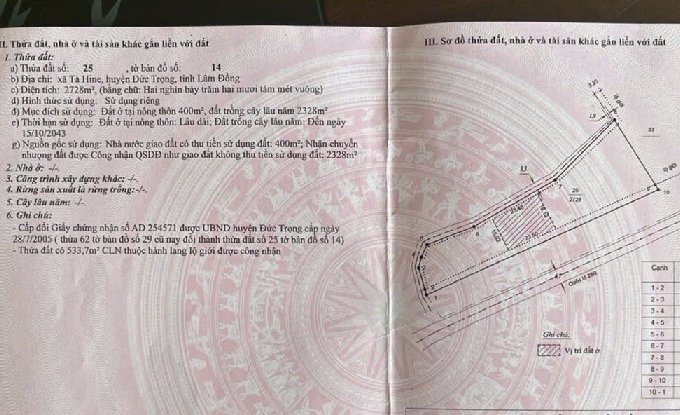 II. Thửa đất, nhà ở và tài sản khác gắn liền với đất
1. Thửa đất:
a) Thửa đất số: 25 , tờ bản đồ số: 14
b) Địa chỉ: xã Tà Hine, huyện Đức Trọng, tỉnh Lâm Đồng
c) Diện tích: 2728m², (bằng chữ: Hai nghìn bảy trăm hai mươi tám mét vuông)
d) Hình thức sử dụng: Sử dụng riêng
đ) Mục đích sử dụng: Đất ở tại nông thôn 400m², đất trồng cây lâu năm 2328m²
e) Thời hạn sử dụng: Đất ở tại nông thôn: Lâu dài; Đất trồng cây lâu năm: Đến ngày
15/10/2043
g) Nguồn gốc sử dụng: Nhà nước giao đất có thu tiền sử dụng đất: 400m²; Nhận chuyển
nhượng đất được Công nhận QSDĐ như giao đất không thu tiền sử dụng đất: 2328m²
2. Nhà ở: -/-.
3. Công trình xây dựng khác: -/-.
4. Rừng sản xuất là rừng trồng: -/-.
5. Cây lâu năm: -/-.
6. Ghi chú:
- Cấp đổi Giấy chứng nhận số AD 254571 được UBND huyện Đức Trọng cấp ngày
28/7/2005 ( thửa 62 tờ bản đồ số 29 cũ nay đổi thành thửa đất số 25 tờ bản đồ số 14)
- Thửa đất có 533,7m² CLN thuộc hành lang lộ giới được công nhận
III. Sơ đồ thửa đất, nhà ở và tài sản khác gắn liền với đất
33
25
2728
7
10
Ghi chú:
Vị trí đất ở
Cạnh
1 - 2
2 - 3
3 - 4
4 - 5
5 - 6
6 - 7
7 - 8
8 - 9
9 - 10
10 - 1